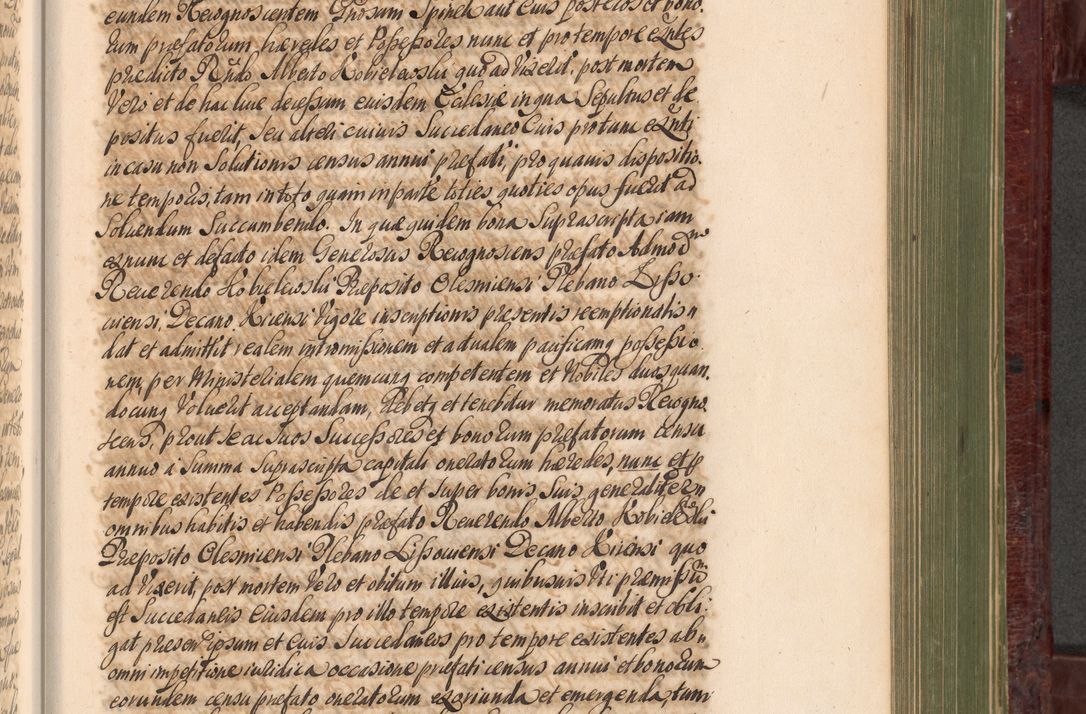 eundem Recognoscentem Gnosum Spinek aut Eius posteros et bono
rum præfatorum hæredes et Possessores nunc et pro tempore exntes
prædicto Rndo Alberto Kobielewski quo ad vixerit, post mortem
vero et de hac luce decessum eiusdem Ecclesiæ in qua Sepultus et de
positus fuerit, seu alteri cuivis Succedaneo Eius pro tunc exnti
in casu non Solutionis census annui præfati, pro quavis dispositio
ne temporis, tam in toto quam in parte toties quoties opus fuerit ad
Soluendum Succumbendo. In quæ quidem bona Suprascripta iam
ex nunc et defacto idem Generosus Recognoscens præfato Admodm
Reuerendo Kobielewski Præposito Olesniensi Plebano Lisso
uiensi, Decano Xicensi Vigore inscriptionis præsentis reemptionalis
dat et admittit realem intromissionem et actualem pacificamq possessio
nem, per Ministerialem quemcunq competentem et Nobiles duos quan
documq Voluerit acceptandam, Debetq et tenebitur memoratus Recogno
scens, prout se ac Suos Successores et bonorum præfatorum censu
annuo à Summa Suprascripta capitali oneratorum hæredes, nunc et p
tempore existentes Possessores de et super bonis Suis generaliter in
omnibus habitis et habendis præfato Reuerendo Alberto Kobielski
Præposito Olesniensi Plebano Lissouiensi Decano Xicensi quo
ad vixerit, post mortem vero et obitum illius, quibusuis uti præmissu
est Succedaneis Eiusdem pro illo tempore existentis inscribit et obli
gat præsen ipsum et Eius Succedaneos pro tempore existentes ab
omni impetitione iuridica occasione præfati census annui et bonorum
eorundem censu præfato oneratorum exoriunda et emergenda, tum